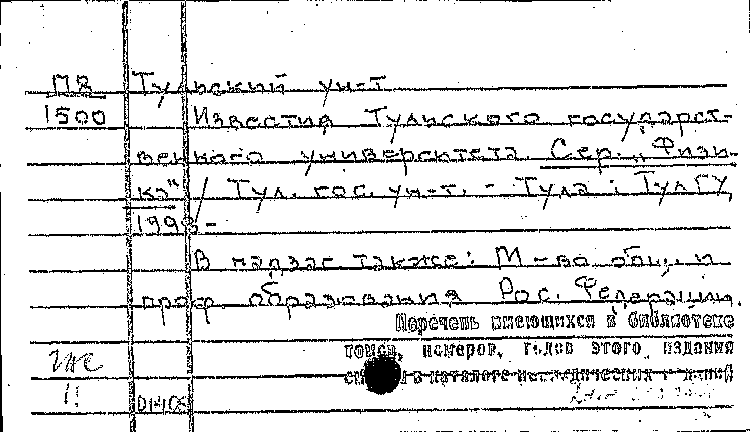 П8 Тульский ун-т
1500 Известия Тульского государст-
венного университета. Сер. „Физи-
ка“ / Тул. гос. ун-т. - Тула : ТулГУ,
1998-
В надзаг также: М-во общ. и
проф. образования Рос. Федерации.
Перечень имеющихся в библиотеке
томов, номеров, годов этого издания
в каталоге периодических изданий